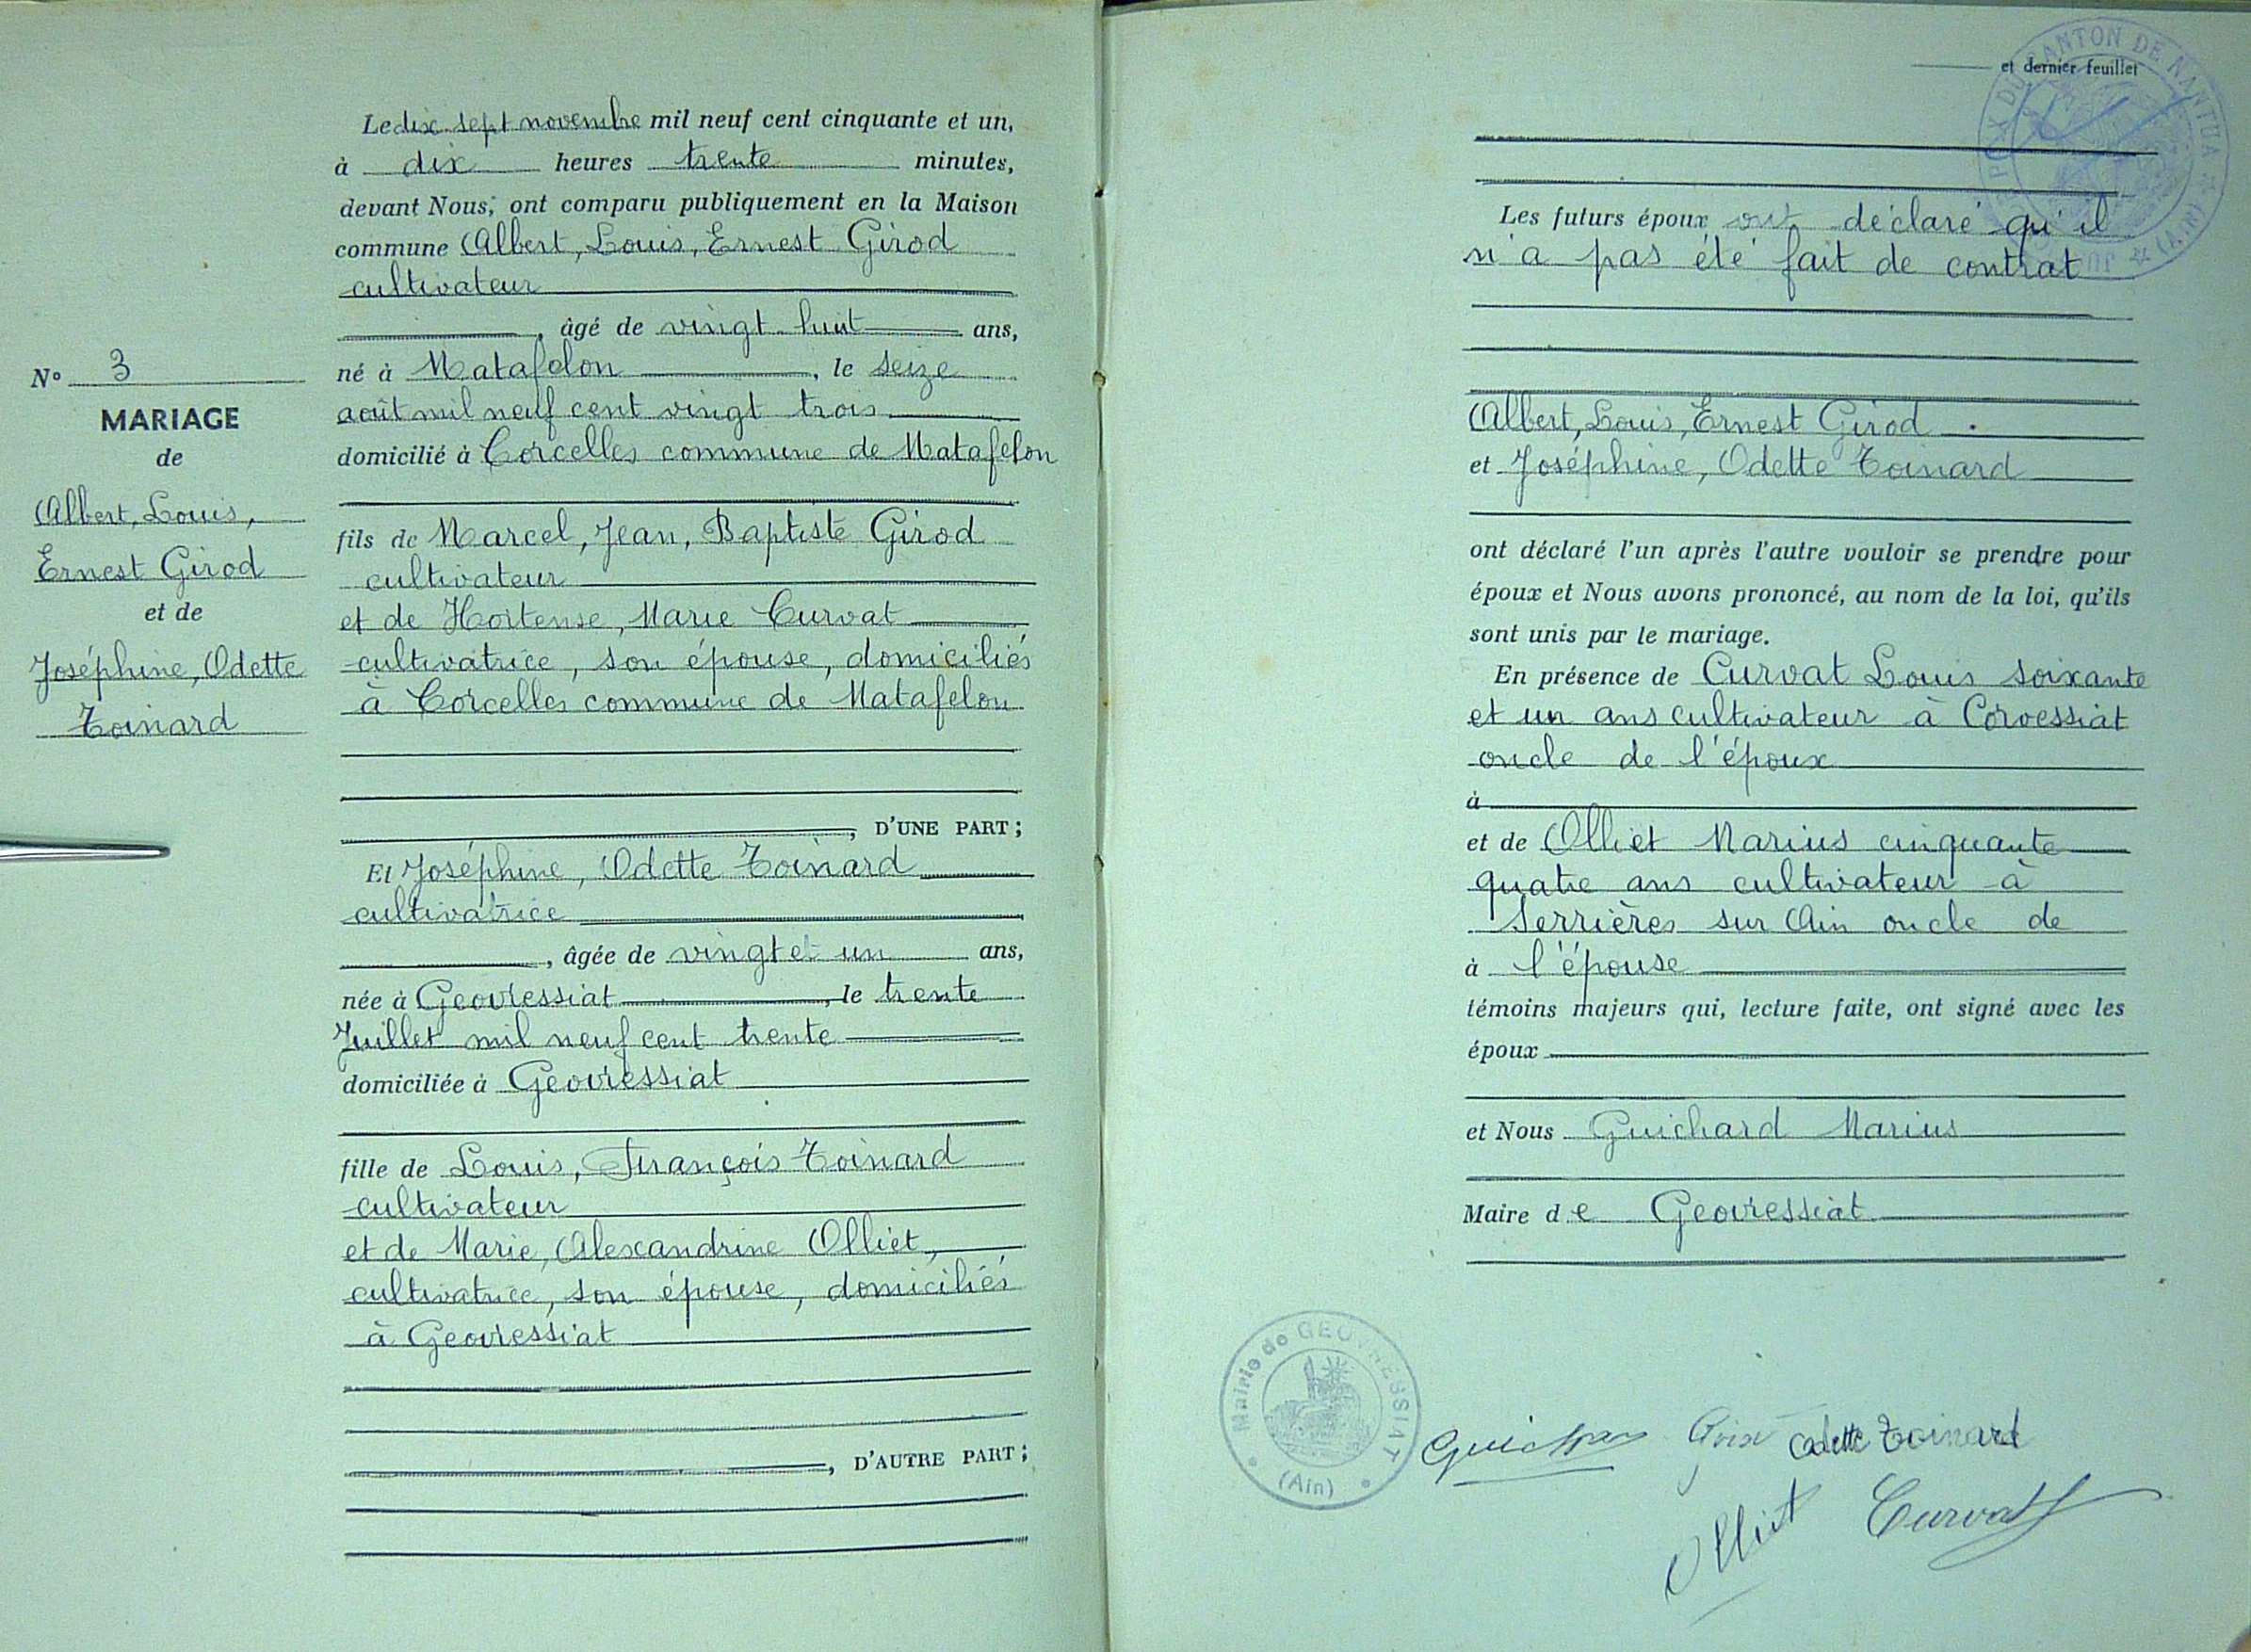 N° 3
MARIAGE
de
Albert, Louis,
Ernest Girod
et de
Joséphine, Odette
Toinard
Le dix-sept novembre mil neuf cent cinquante et un,
à dix heures trente minutes,
devant Nous, ont comparu publiquement en la Maison
commune Albert, Louis, Ernest Girod
cultivateur
, âgé de vingt-huit ans,
né à Matafelon, le seize
août mil neuf cent vingt trois
domicilié à Corcelles commune de Matafelon
fils de Marcel, Jean, Baptiste Girod
cultivateur
et de Hortense, Marie Curvat
cultivatrice, son épouse, domiciliés
à Corcelles commune de Matafelon
, D'UNE PART ;
Et Joséphine, Odette Toinard
cultivatrice
, âgée de vingt et un ans,
née à Geovressiat, le trente
Juillet mil neuf cent trente
domiciliée à Geovressiat
fille de Louis, François Toinard
cultivateur
et de Marie, Alexandrine Olliet,
cultivatrice, son épouse, domiciliés
à Geovressiat
, D'AUTRE PART ;
et dernier feuillet
CANTON DE NANTUA (AIN)
Les futurs époux ont déclaré qu'il
n'a pas été fait de contrat
Albert, Louis, Ernest Girod.
et Joséphine, Odette Toinard
ont déclaré l'un après l'autre vouloir se prendre pour
époux et Nous avons prononcé, au nom de la loi, qu'ils
sont unis par le mariage.
En présence de Curvat Louis soixante
et un ans cultivateur à Corvessiat
oncle de l'époux
à
et de Olliet Marius cinquante
quatre ans cultivateur à
Serrières sur Ain oncle de
à l'épouse
témoins majeurs qui, lecture faite, ont signé avec les
époux
et Nous Guichard Marius
Maire de Geovressiat
Mairie de GEOVRESSIAT
(Ain)
Odette Toinard
Olliet Curvat